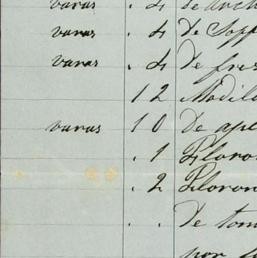 varas . 4 de anch
varas . 4 de Sopp
varas . 4 de fris
12 Modill
varas 10 de ape
. 1 Floron
. 2 Floron
. . de tom
por